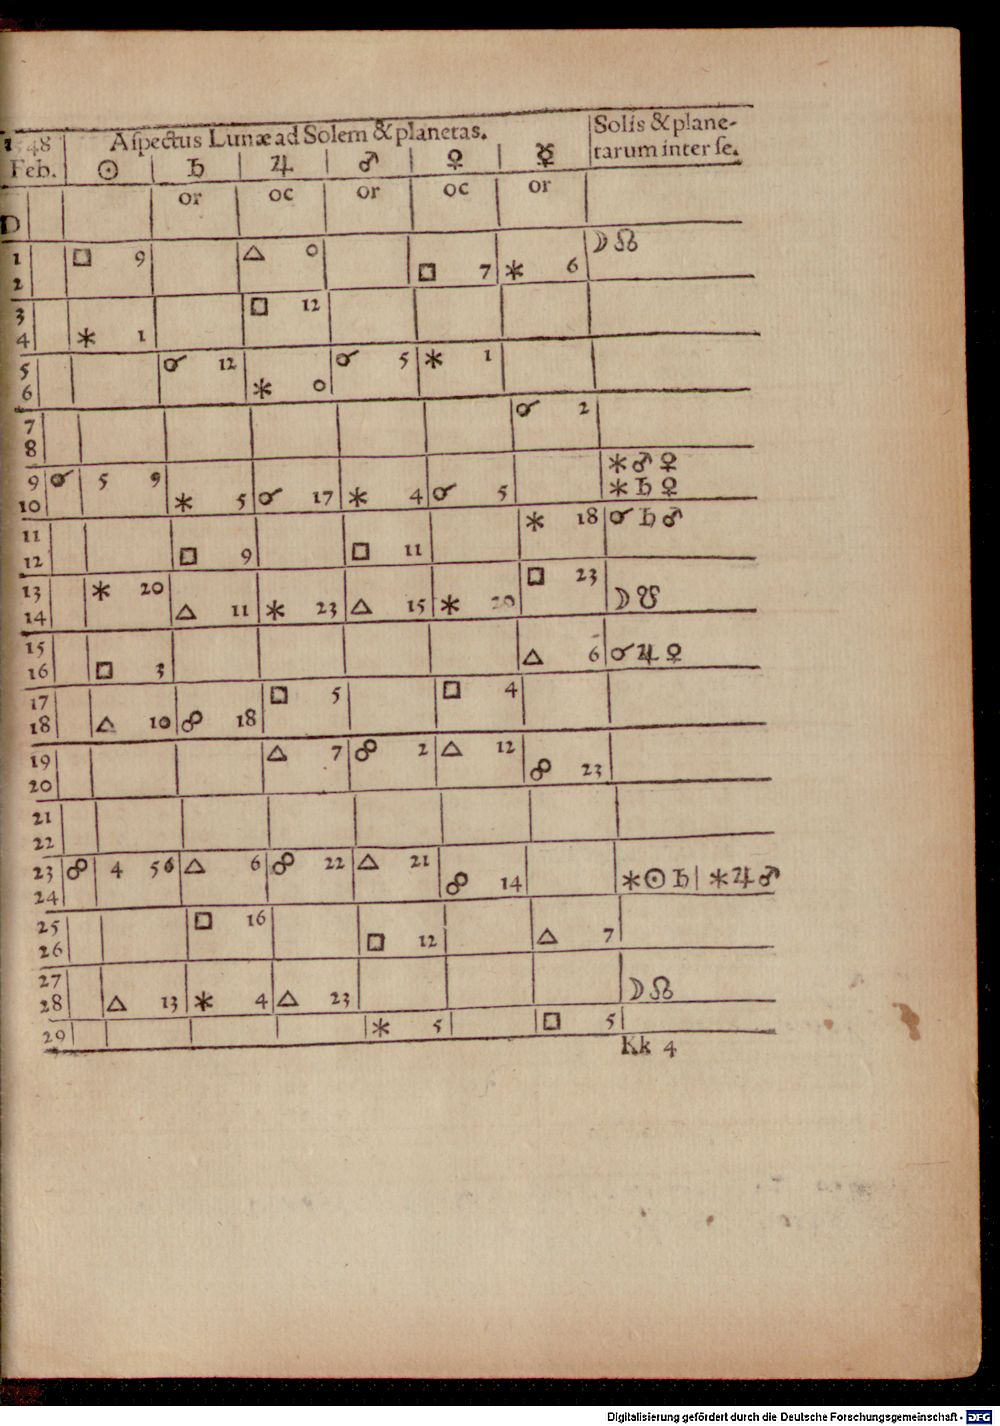 1548 Aſpectus Lunæ ad Solem & planetas. Solis & plane-
Feb. ☉ ♄ ♃ ♂ ♀ ☿ tarum inter ſe.
or oc or oc or
D
1 □ 9 △ 0 ☽ ☊
2 □ 7 ✶ 6
3 □ 12
4 ✶ 1
5 ☌ 12 ☌ 5 ✶ 1
6 ✶ 0
7 ☌ 2
8
9 ☌ 5 9 ✶ ♂ ♀
10 ✶ 5 ☌ 17 ✶ 4 ☌ 5 ✶ ♄ ♀
11 ✶ 18 ☌ ♄ ♂
12 □ 9 □ 11
13 ✶ 20 □ 23
14 △ 11 ✶ 23 △ 15 ✶ 20 ☽ ☋
15
16 □ 3 △ 6 ☌ ♃ ♀
17 □ 5 □ 4
18 △ 10 ☍ 18
19 △ 7 ☍ 2 △ 12
20 ☍ 23
21
22
23 ☍ 4 56 △ 6 ☍ 22 △ 21
24 ☍ 14 ✶ ☉ ♄ | ✶ ♃ ♂
25 □ 16
26 □ 12 △ 7
27
28 △ 13 ✶ 4 △ 23 ☽ ☊
29 ✶ 5 □ 5
Kk 4
Digitalisierung gefördert durch die Deutsche Forschungsgemeinschaft - DFG